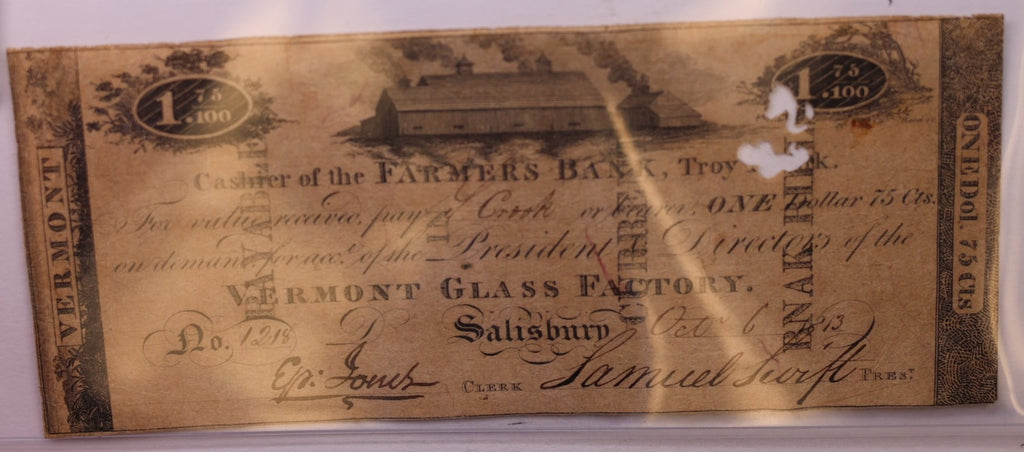 1.75/100
1.75/100
VERMONT
ONE Dol. 75 Cts
Cashier of the FARMERS BANK, Troy
For value received, pay Crook or bearer, ONE Dollar 75 Cts.
on demand for acc.t of the President Directors of the
VERMONT GLASS FACTORY.
No. 1218 Salisbury Oct 6 1813
CLERK Samuel Swift PRES.T
PAYABLE
IN
CURRENT